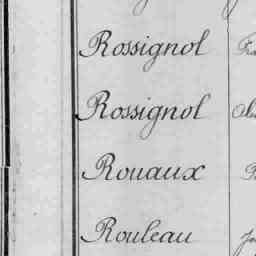 Rossignol
Rossignol
Rouaux
Rouleau